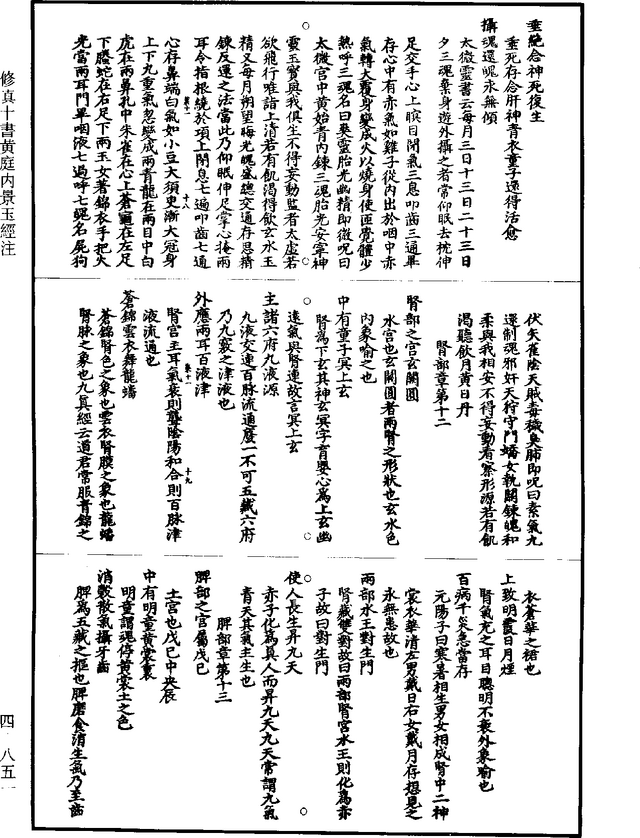 垂絕念神死復生
垂死存念肝神青衣童子還得活愈
攝魂還魄永無傾
太微靈書云每月三日十三日二十三日
夕三魂棄身遊外攝之者當仰眠去枕伸
足交手心上瞑目閉氣三息叩齒三通畢
存心中有赤氣如雞子從內出於咽中赤
氣轉大覆身變成火以燒身使匝覺體少
熱呼三魂名曰爽靈胎光幽精即微呪曰
太微宮中黃始青內鍊三魂胎光安寧神
靈玉寶與我俱生不得妄動監者太虛若
欲飛行唯詣上清若有飢渴得飲玄水玉
精又每月朔望晦光魄盛總交通存思精
鍊反還之法當此乃仰眠伸足掌心掩兩
耳令指根繞於項上閉息七過叩齒七通
心存鼻端白氣如小豆大須臾漸大冠身
上下九重氣忽變成兩青龍在兩目中白
虎在兩鼻孔中朱雀在心上蒼龜在左足
下螣蛇在右足下兩玉女著錦衣手把火
光當兩耳門畢咽液七過呼七魄名屍狗
伏矢雀陰天賊毒穢臭肺即呪曰素氣九
還制魂邪奸天狩守門嬌女執關鍊魄和
柔與我相安不得妄動看察形源若有飢
渴聽飲月黃日丹
腎部章第十二
腎部之宮玄闕圓
水宮也玄闕圓者兩腎之形狀也玄水色
內象喻之也
中有童子冥上玄
腎為下玄其神玄冥字育嬰心為上玄幽
遠氣與腎連故言冥上玄
主諸六府九液源
九液交連百脉流通廢一不可五藏六府
乃九竅之津液也
外應兩耳百液津
腎宮主耳氣衰則聾陰陽和合則百脉津
液流通也
蒼錦雲衣舞龍蟠
蒼錦腎色之象也雲衣腎膜之象也龍蟠
腎脉之象也九真經云道君常服青錦之
衣蒼華之裙也
上致明霞日月煙
腎氣充之耳目聰明不衰外象喻也
百病千災急當存
元陽子曰寒暑相生男女相成腎中二神
裳衣華清左男戴日右女戴月存想見之
永無患故也
兩部水王對生門
腎藏雙對故曰兩部腎宮水王則化為赤
子故曰對生門
使人長生昇九天
赤子化為真人而昇九天九天常謂九氣
青天其氣主生也
脾部章第十三
脾部之宮屬戊己
土宮也戊己中央辰
中有明童黃裳裏
明童謂魂停黃裳土之色
消穀散氣攝牙齒
脾為五藏之樞也脾磨食消生氣乃至齒
修真十書黃庭內景玉經注
四·八五一